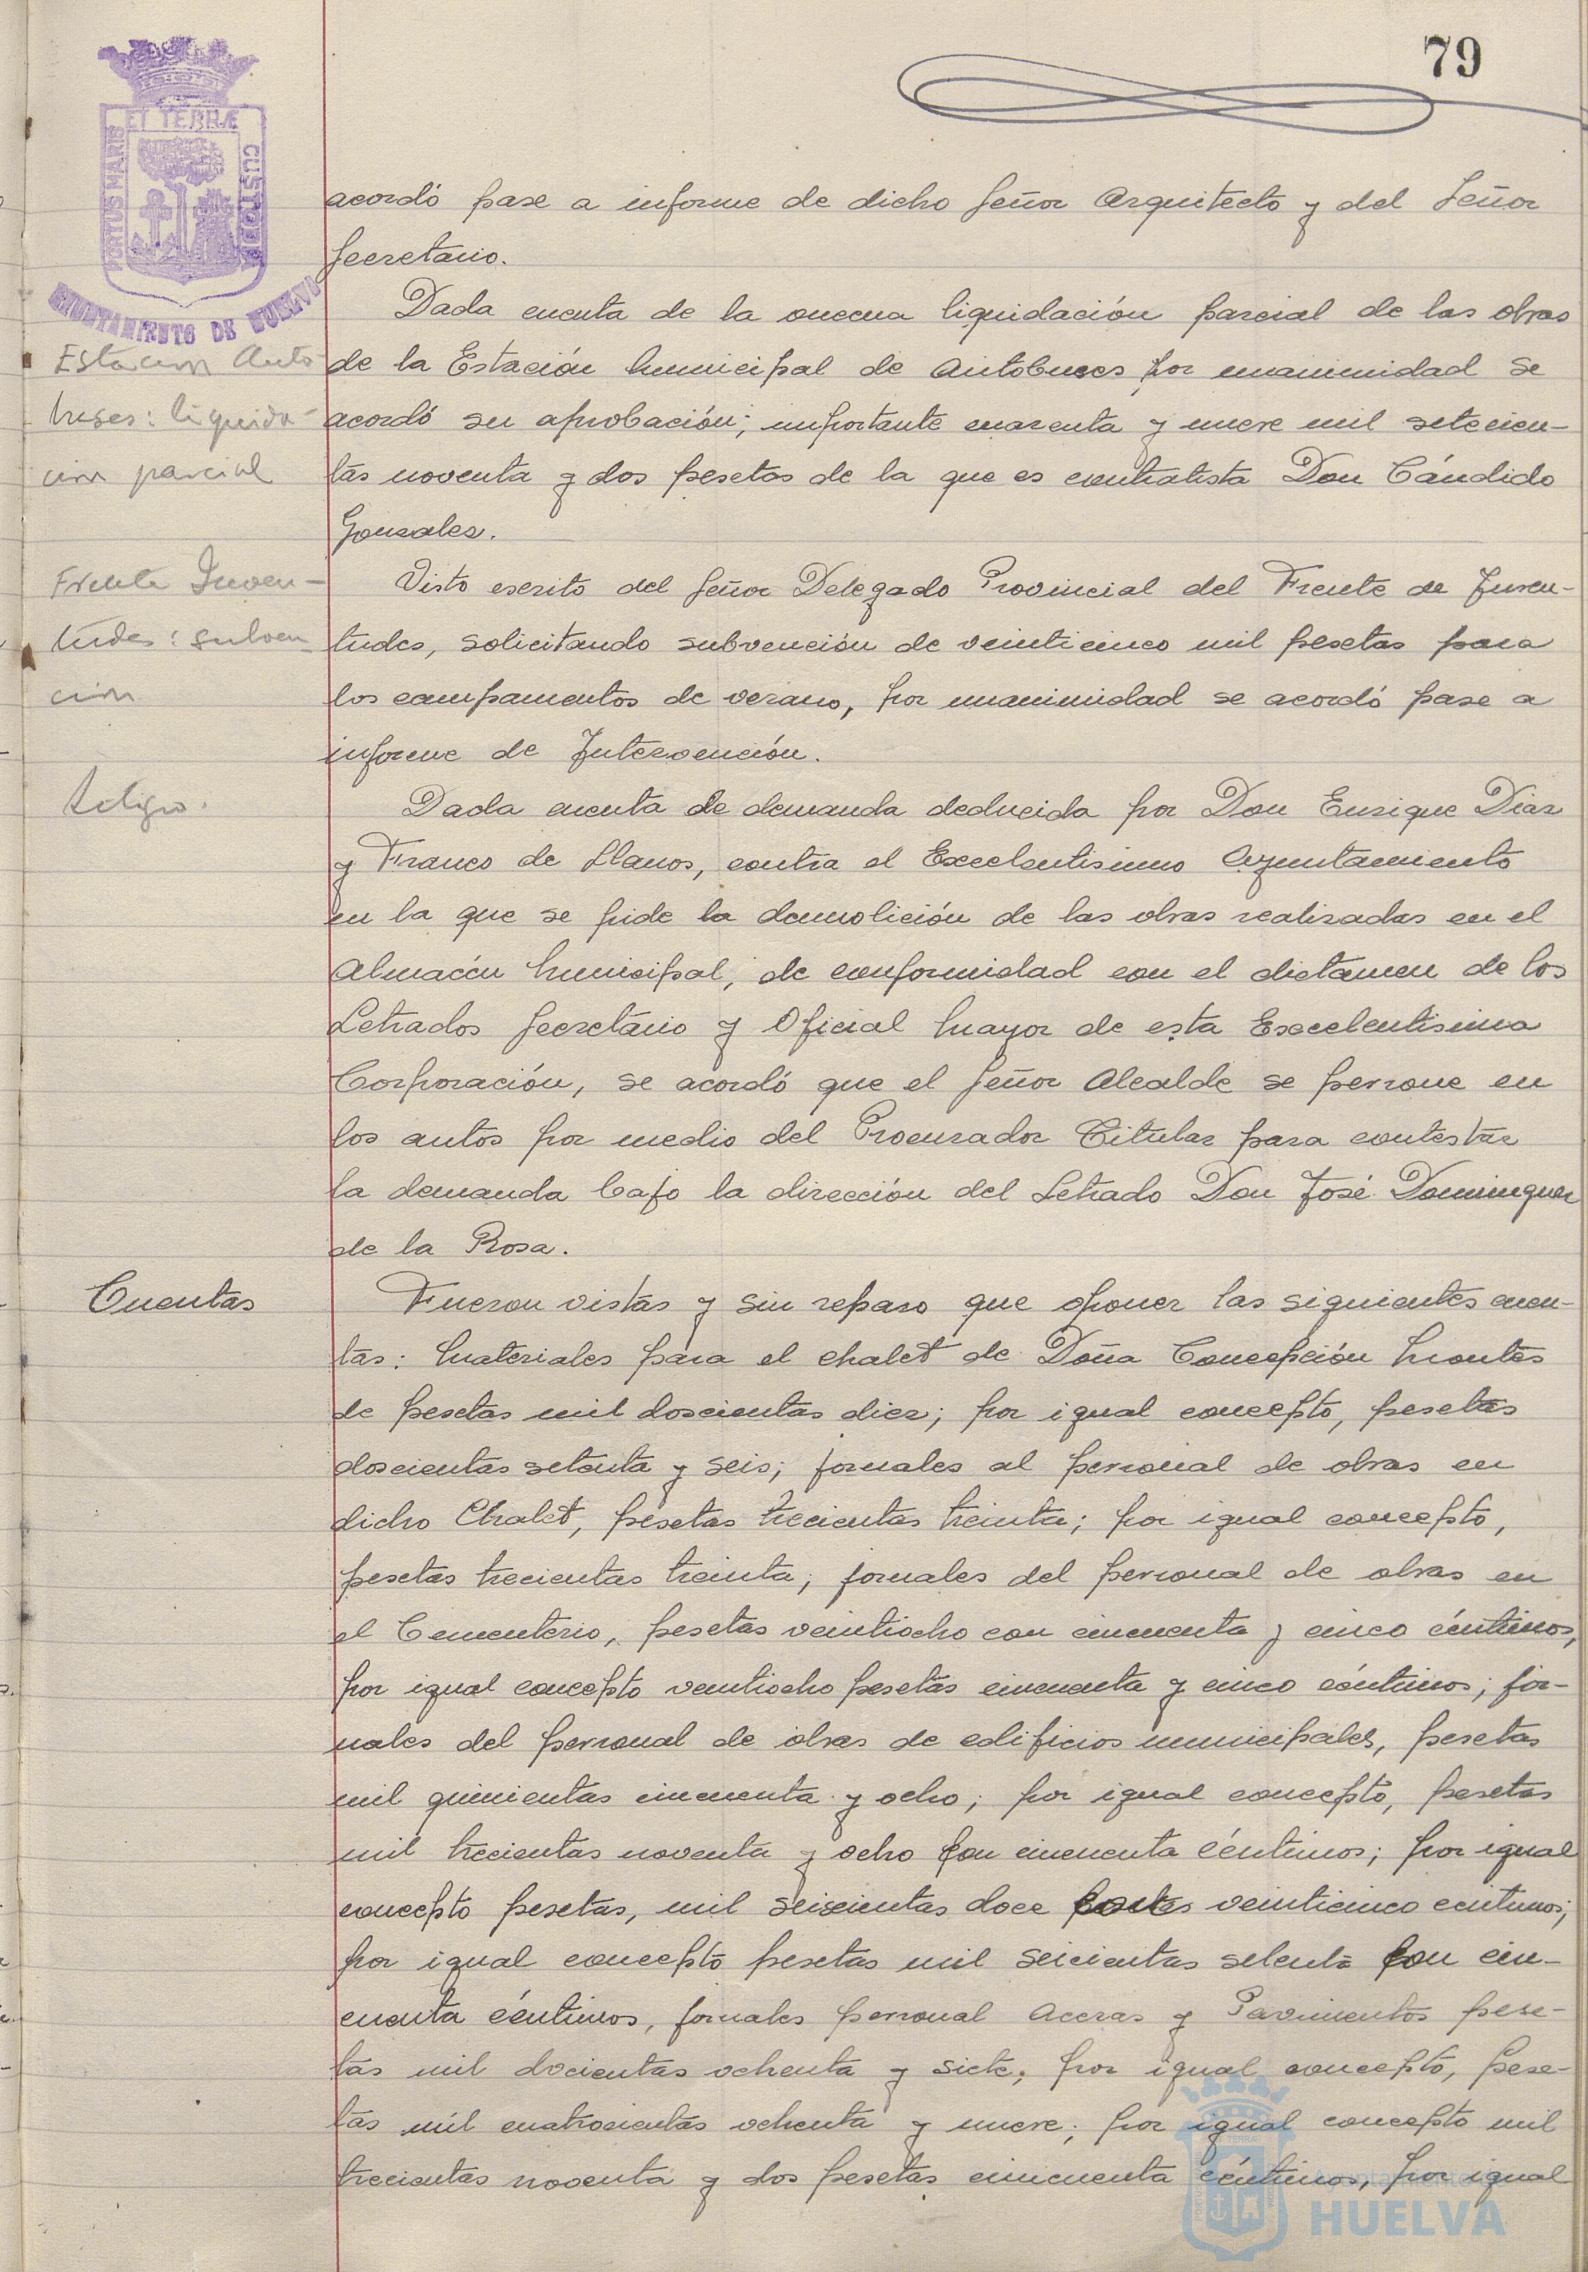 79
PORTUS MARIS ET TERRÆ CUSTODIA
AYUNTAMIENTO DE HUELVA
acordó pase a informe de dicho Señor Arquitecto y del Señor
Secretario.
Dada cuenta de la novena liquidación parcial de las obras
Estacion Auto
de la Estación Municipal de Autobuses, por unanimidad se
buses: liquida-
acordó su aprobación; importante cuarenta y nueve mil setecien-
cion parcial
tas noventa y dos pesetas de la que es contratista Don Cándido
Gonzales.
Frente Juven-
Visto escrito del Señor Delegado Provincial del Frente de Juven-
tudes: subven
tudes, solicitando subvención de veinticinco mil pesetas para
cion
los campamentos de verano, por unanimidad se acordó pase a
informe de Intervención.
Litigio.
Dada cuenta de demanda deducida por Don Enrique Díaz
y Franco de Llanos, contra el Excelentisimo Ayuntamiento
en la que se pide la demolición de las obras realizadas en el
Almacén Municipal, de conformidad con el dictamen de los
Letrados Secretario y Oficial Mayor de esta Excelentisima
Corporación, se acordó que el Señor Alcalde se persone en
los autos por medio del Procurador Titular para contestar
la demanda bajo la dirección del Letrado Don José Dominguez
de la Rosa.
Cuentas
Fueron vistas y sin reparo que oponer las siguientes cuen-
tas: Materiales para el chalet de Doña Concepción Montes
de pesetas mil doscientas diez; por igual concepto, pesetas
doscientas setenta y seis; jornales al personal de obras en
dicho Chalet, pesetas trecientas treinta; por igual concepto,
pesetas trecientas treinta; jornales del personal de obras en
el Cementerio, pesetas veintiocho con cincuenta y cinco céntimos,
por igual concepto veintiocho pesetas cincuenta y cinco céntimos; jor-
nales del personal de obras de edificios municipales, pesetas
mil quinientas cincuenta y ocho; por igual concepto, pesetas
mil trecientas noventa y ocho con cincuenta céntimos; por igual
concepto pesetas, mil seiscientas doce veinticinco centimos;
por igual concepto pesetas mil seicientas setenta con cin-
cuenta céntimos, jornales personal Aceras y Pavimentos pese-
tas mil docientas ochenta y siete; por igual concepto, pese-
tas mil cuatrocientas ochenta y nueve; por igual concepto mil
trecientas noventa y dos pesetas cincuenta céntimos, por igual
Ayuntamiento de
HUELVA